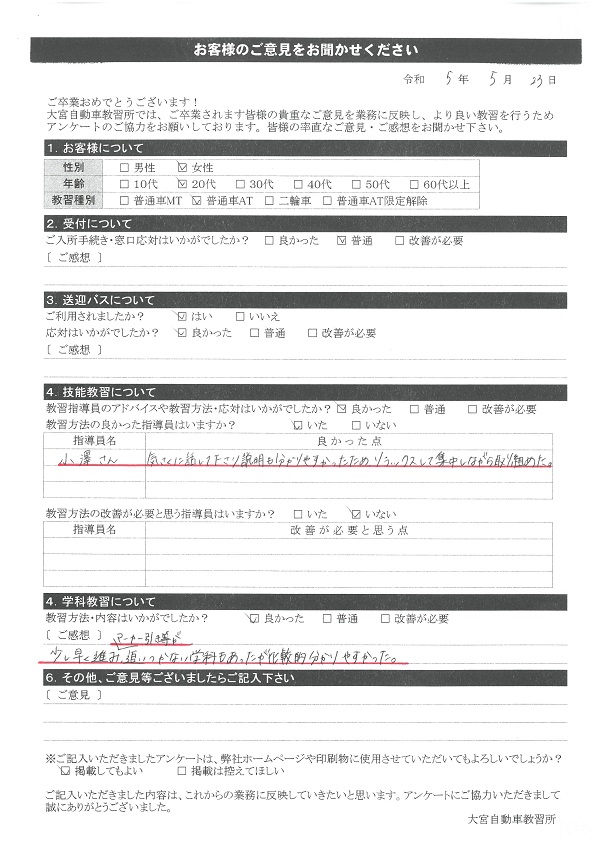 お客様のご意見をお聞かせください
令和 5 年 5 月 23 日
ご卒業おめでとうございます！
大宮自動車教習所では、ご卒業されます皆様の貴重なご意見を業務に反映し、より良い教習を行うため
アンケートのご協力をお願いしております。皆様の率直なご意見・ご感想をお聞かせ下さい。
1. お客様について
性別 □ 男性 ☑ 女性
年齢 □ 10代 ☑ 20代 □ 30代 □ 40代 □ 50代 □ 60代以上
教習種別 □ 普通車MT ☑ 普通車AT □ 二輪車 □ 普通車AT限定解除
2. 受付について
ご入所手続き・窓口応対はいかがでしたか？ □ 良かった ☑ 普通 □ 改善が必要
［ ご感想 ］
3. 送迎バスについて
ご利用されましたか？ ☑ はい □ いいえ
応対はいかがでしたか？ ☑ 良かった □ 普通 □ 改善が必要
［ ご感想 ］
4. 技能教習について
教習指導員のアドバイスや教習方法・応対はいかがでしたか？ ☑ 良かった □ 普通 □ 改善が必要
教習方法の良かった指導員はいますか？ ☑ いた □ いない
指導員名 良かった点
小澤さん 気さくに話して下さり説明も分かりやすかったためリラックスして集中しながら取り組めた。
教習方法の改善が必要と思う指導員はいますか？ □ いた ☑ いない
指導員名 改善が必要と思う点
4. 学科教習について
教習方法・内容はいかがでしたか？ ☑ 良かった □ 普通 □ 改善が必要
［ ご感想 ］ マーカー引き等が
少し早く進み、追いつかない学科もあったが比較的分かりやすかった。
6. その他、ご意見等ございましたらご記入下さい
［ ご意見 ］
※ご記入いただきましたアンケートは、弊社ホームページや印刷物に使用させていただいてもよろしいでしょうか？
☑ 掲載してもよい □ 掲載は控えてほしい
ご記入いただきました内容は、これからの業務に反映していきたいと思います。アンケートにご協力いただきまして
誠にありがとうございました。
大宮自動車教習所